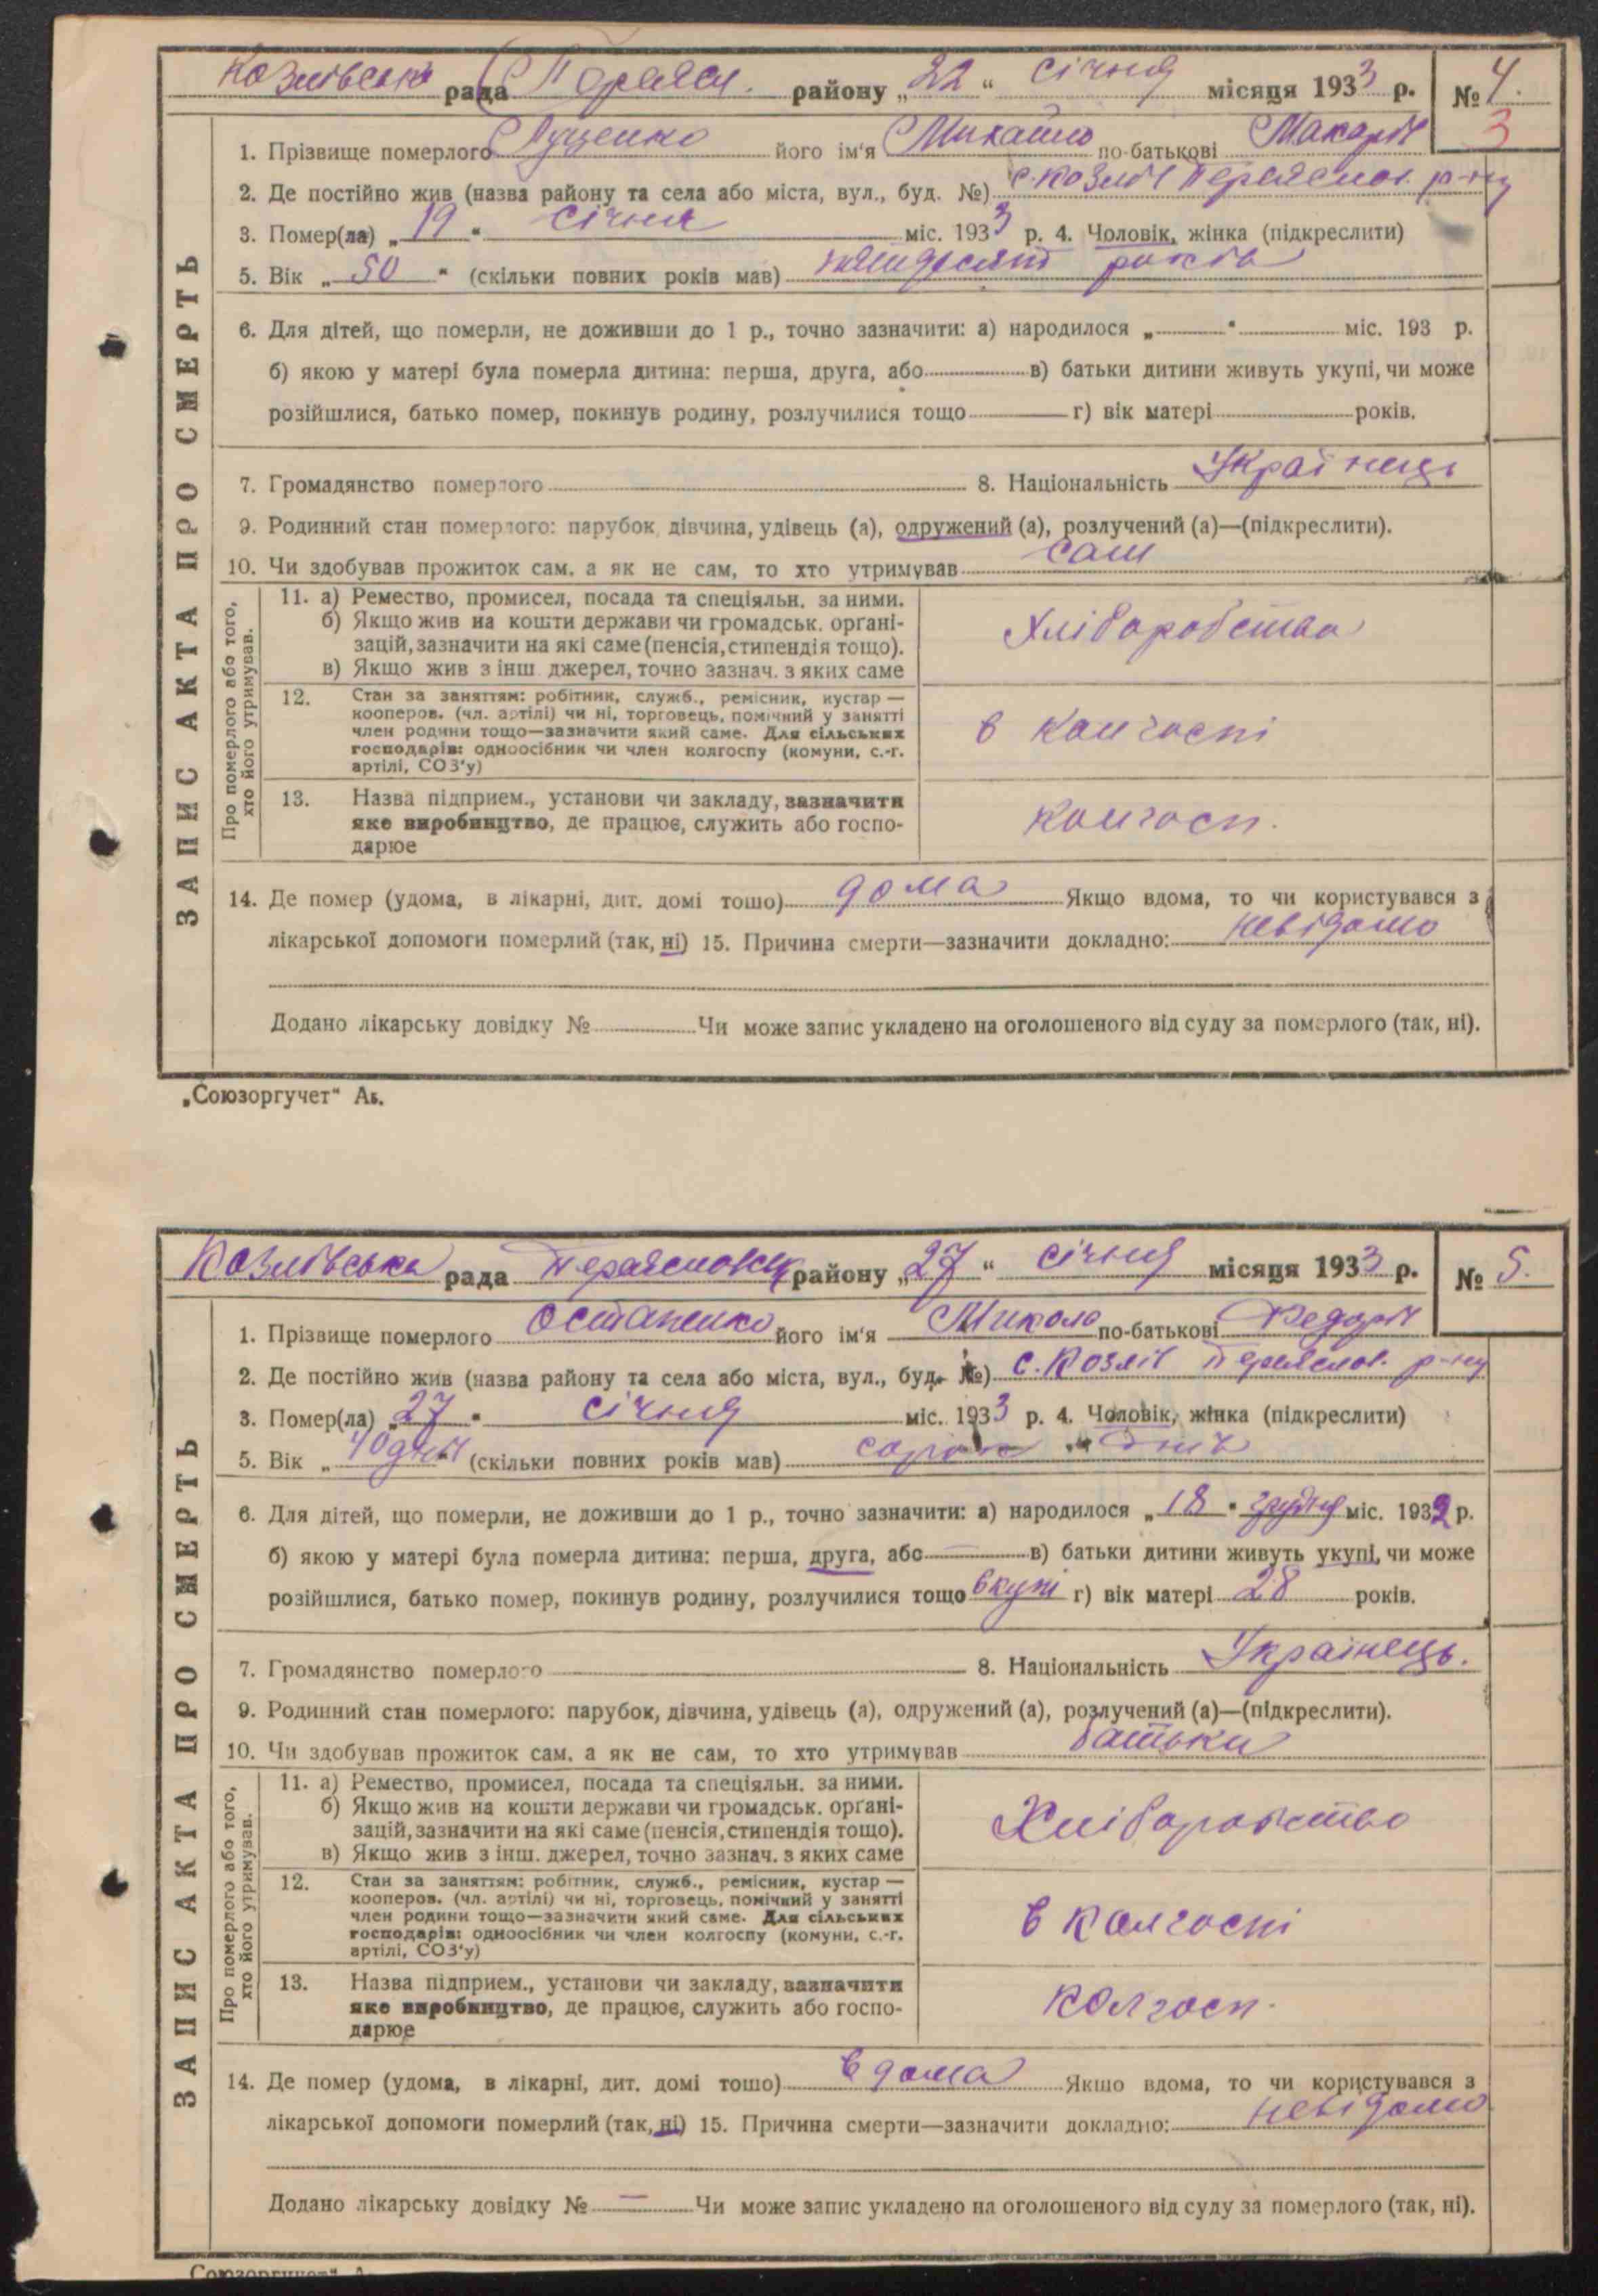 Козлівська рада Переясл. району „22" січня місяця 1933 р. № 4.
3
1. Прізвище померлого Луценко його ім'я Михайло по-батькові Макарів
2. Де постійно жив (назва району та села або міста, вул., буд. №) с. Козлів Переяслов. р-ну
3. Помер(ла) „19" січня міс. 1933 р. 4. Чоловік, жінка (підкреслити)
5. Вік „50" (скільки повних років мав) пятдесят років
6. Для дітей, що померли, не доживши до 1 р., точно зазначити: а) народилося „ " міс. 193 р.
б) якою у матері була померла дитина: перша, друга, або в) батьки дитини живуть укупі, чи може
розійшлися, батько помер, покинув родину, розлучилися тощо г) вік матері років.
7. Громадянство померлого 8. Національність Українець
9. Родинний стан померлого: парубок, дівчина, удівець (а), одружений (а), розлучений (а)—(підкреслити).
10. Чи здобував прожиток сам, а як не сам, то хто утримував сам
ЗАПИС АКТА ПРО СМЕРТЬ
Про померлого або того,
хто його утримував.
11. а) Ремество, промисел, посада та спеціяльн. за ними.
б) Якщо жив на кошти держави чи громадськ. органі-
зацій, зазначити на які саме (пенсія, стипендія тощо).
в) Якщо жив з інш джерел, точно зазнач. з яких саме
Хліборобство
12. Стан за заняттям: робітник, служб., ремісник, кустар —
кооперов. (чл. артілі) чи ні, торговець, помічний у занятті
член родини тощо—зазначити який саме. Для сільських
господарів: одноосібник чи член колгоспу (комуни, с.-г.
артілі, СОЗ'у)
в колгоспі
13. Назва підприєм., установи чи закладу, зазначити
яке виробництво, де працює, служить або госпо-
дарює
колгосп.
14. Де помер (удома, в лікарні, дит. домі тощо) дома Якщо вдома, то чи користувався з
лікарської допомоги померлий (так, ні) 15. Причина смерти—зазначити докладно: невідомо
Додано лікарську довідку № Чи може запис укладено на оголошеного від суду за померлого (так, ні).
„Союзоргучет" Аб.
Козлівська рада Переясловськ району „27" січня місяця 1933 р. № 5.
1. Прізвище померлого Остапенко його ім'я Микола по-батькові Федорів
2. Де постійно жив (назва району та села або міста, вул., буд. №) с. Козлів Переяслов. р-ну
3. Помер(ла) „27" січня міс. 1933 р. 4. Чоловік, жінка (підкреслити)
5. Вік „40 днів" (скільки повних років мав) сорок днів
6. Для дітей, що померли, не доживши до 1 р., точно зазначити: а) народилося „18" грудня міс. 1932 р.
б) якою у матері була померла дитина: перша, друга, або — в) батьки дитини живуть укупі, чи може
розійшлися, батько помер, покинув родину, розлучилися тощо вкупі г) вік матері 28 років.
7. Громадянство померлого 8. Національність Українець.
9. Родинний стан померлого: парубок, дівчина, удівець (а), одружений (а), розлучений (а)—(підкреслити).
10. Чи здобував прожиток сам, а як не сам, то хто утримував батьки
ЗАПИС АКТА ПРО СМЕРТЬ
Про померлого або того,
хто його утримував.
11. а) Ремество, промисел, посада та спеціяльн. за ними.
б) Якщо жив на кошти держави чи громадськ. органі-
зацій, зазначити на які саме (пенсія, стипендія тощо).
в) Якщо жив з інш. джерел, точно зазнач. з яких саме
Хліборобство
12. Стан за заняттям: робітник, служб., ремісник, кустар —
кооперов. (чл. артілі) чи ні, торговець, помічний у занятті
член родини тощо—зазначити який саме. Для сільських
господарів: одноосібник чи член колгоспу (комуни, с.-г.
артілі, СОЗ'у)
в колгоспі
13. Назва підприєм., установи чи закладу, зазначити
яке виробництво, де працює, служить або госпо-
дарює
колгосп.
14. Де помер (удома, в лікарні, дит. домі тощо) вдома Якщо вдома, то чи користувався з
лікарської допомоги померлий (так, ні) 15. Причина смерти—зазначити докладно: невідомо
Додано лікарську довідку № — Чи може запис укладено на оголошеного від суду за померлого (так, ні).